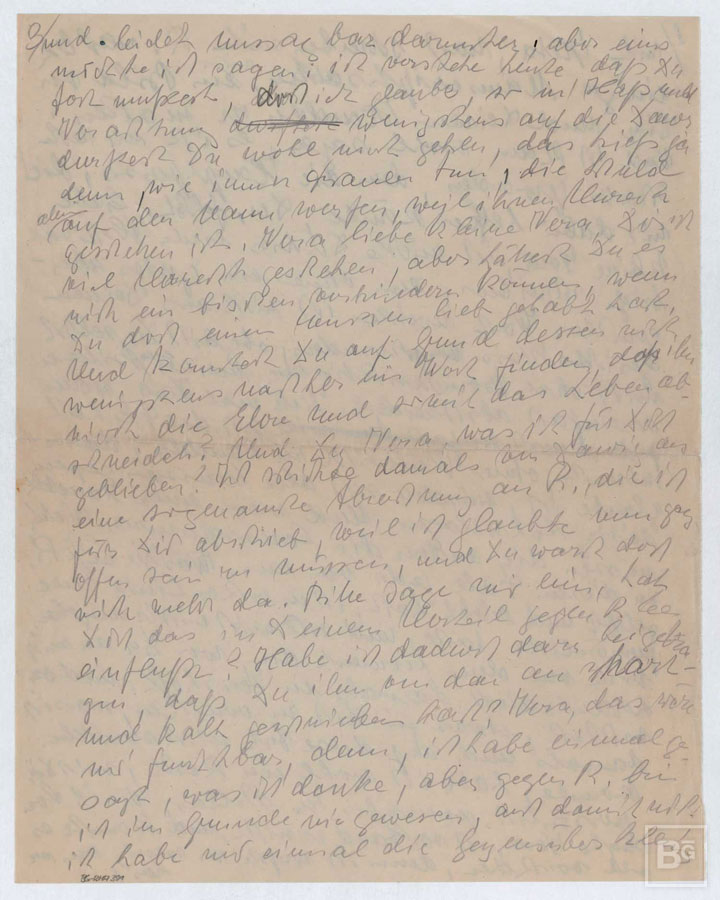 3/ und leidet unsagbar darunter, aber eins
möchte ich sagen: ich verstehe heute daß Du
fort mußtest, doch ich glaube, so in Haß und
Verachtung wenigstens auf die Dauer
durftest Du wohl nicht gehen, das hieß ja
denn, wie immer Frauen tun, die Schuld
aller auf den Mann werfen, weil ihnen Unrecht
geschehen ist. Vera liebe kleine Vera, Dir ist
viel Unrecht geschehen, aber hättest Du es
nicht ein bißchen verhindern können, wenn
Du dort einen Menschen lieb gehabt hast.
Und konntest Du auf Grund dessen nicht
wenigstens nachher ein Wort finden, das ihm
nicht die Ehre und somit das Leben ab-
schneidet? Und Du Vera, was ist für Dich
geblieben? Ich schickte damals von aus
eine sogenannte Abrechnung an R., die ich
für Dich abschrieb, weil ich glaubte nun ganz
offen sein zu müssen, und Du warst dort
nicht mehr da. Bitte sage mir eins, hat
Dich das in Deinem Urteil gegen R.
einflußt? Habe ich dadurch dazu beigetra-
gen, daß Du ihm von da an so hart
und kalt geschrieben hast? Vera, das wäre
mir furchtbar, denn, ich habe einmal ge-
sagt, was ich denke, aber gegen R. bin
ich im Grunde nie gewesen, auch damit nicht.
ich habe nur einmal die gegenüber
BG